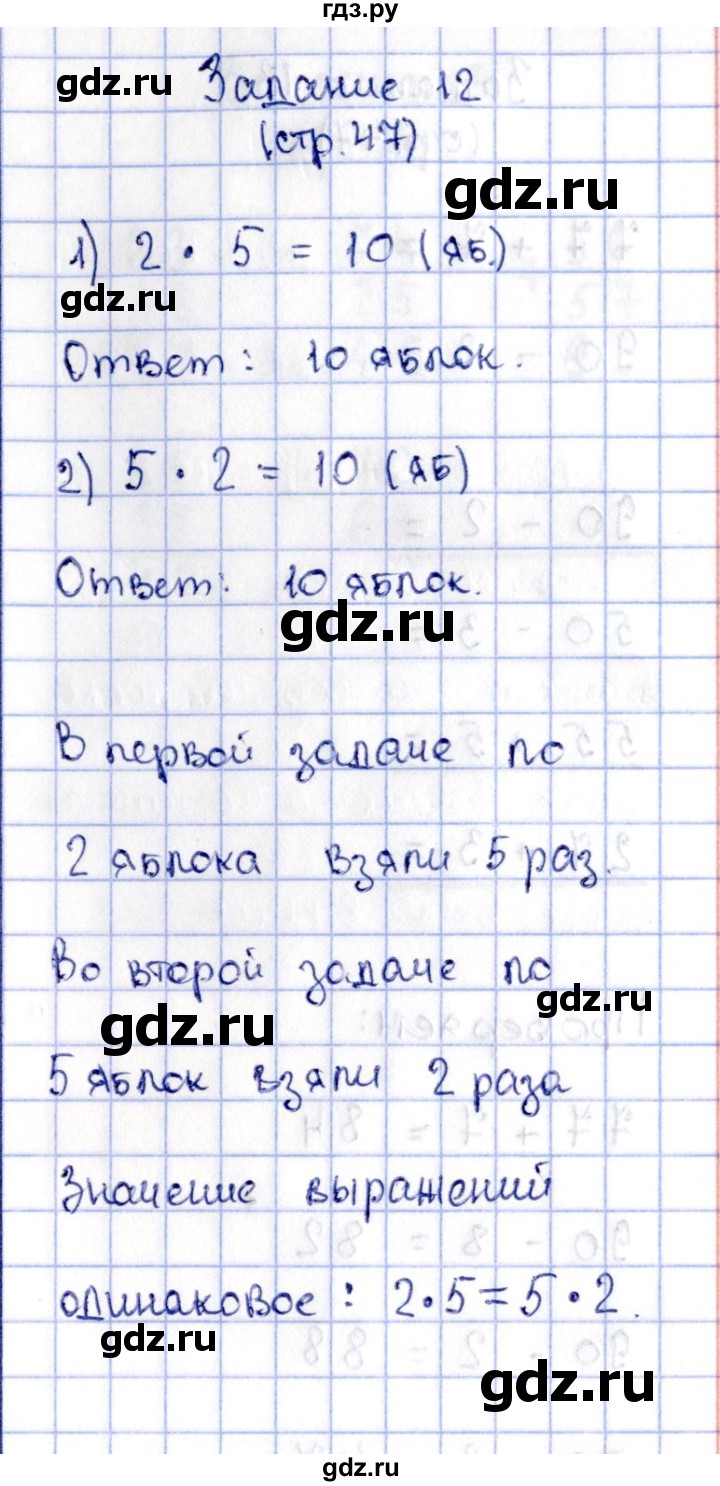 гдз.ру
gdz.ru
Задание 12
(стр. 47)
gdz.ru
1) 2 · 5 = 10 (яб.)
gdz.ru
Ответ: 10 яблок.
2) 5 · 2 = 10 (яб)
Ответ: 10 яблок.
gdz.ru
В первой задаче по
2 яблока взяли 5 раз.
Во второй задаче по
gdz.ru
gdz.ru
5 яблок взяли 2 раза
Значение выражений
одинаковое: 2 · 5 = 5 · 2.
gdz.ru
gdz.ru
gdz.ru